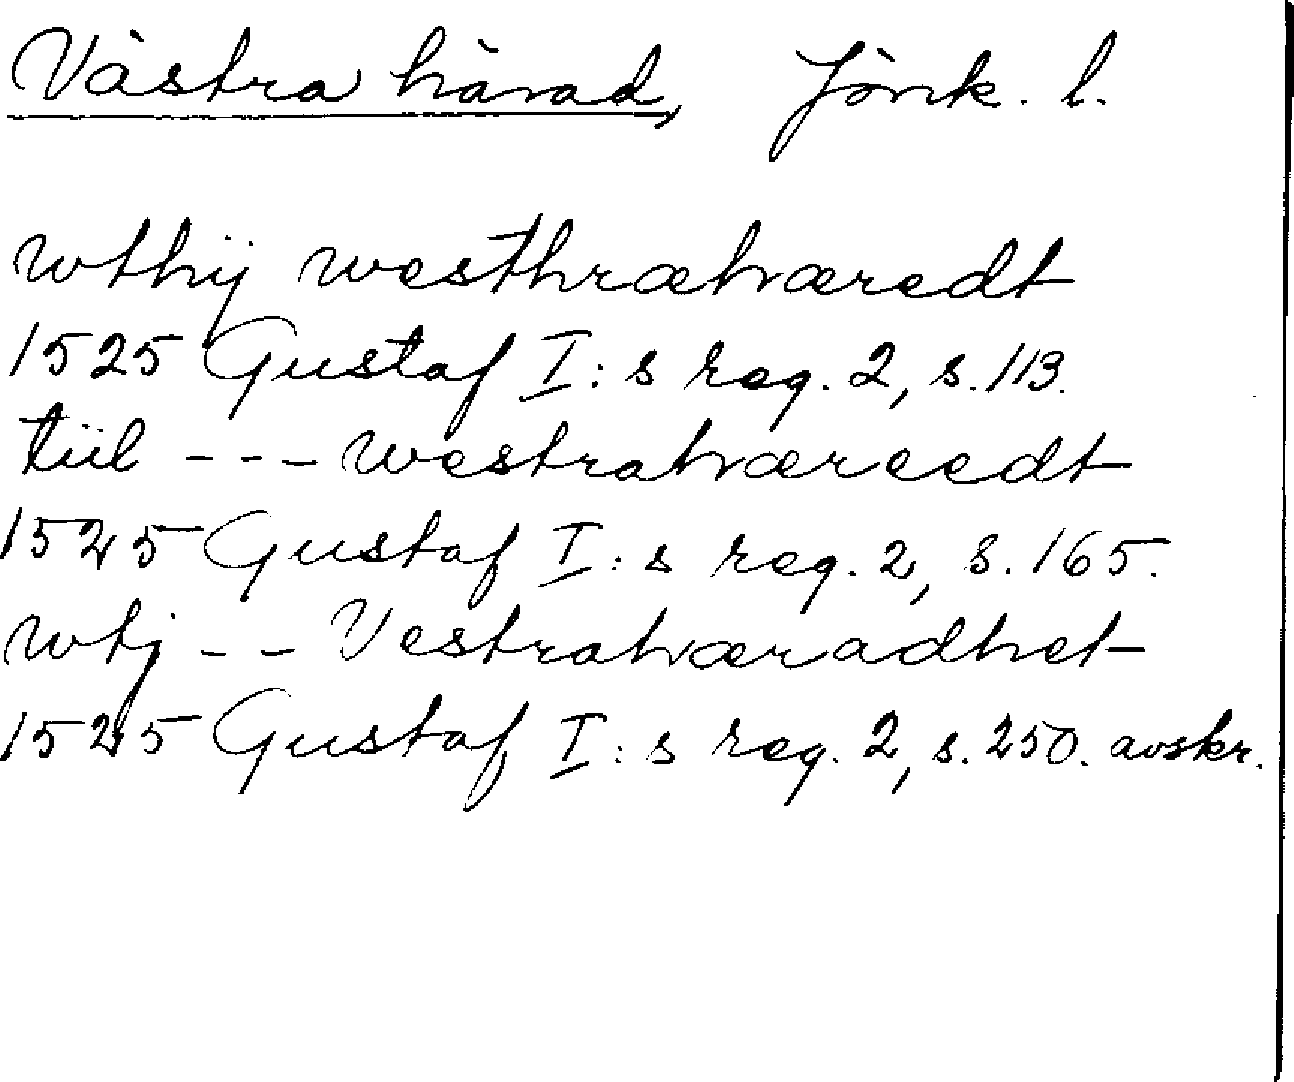 Västra härad, Jönk. l.
wthij westhræhæredt
1525 Gustaf I:s reg. 2, s. 113.
tiil --- westrahæreedt
1525 Gustaf I:s reg. 2, s. 165.
wtj -- Vestrahæradhet
1525 Gustaf I:s reg. 2, s. 250. avskr.